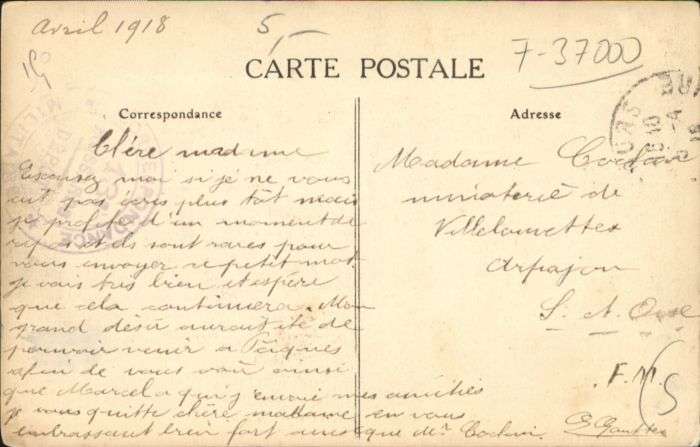 Avril 1918
5
7-37000
CARTE POSTALE
Correspondance
Adresse
Chère madame
Escousez moi si je ne vous
ait pas écris plus tôt mais
je profite d'un moment de
repos et ils sont rares pour
vous envoyer se petit mot
je vais très bien et espère
que cela continuera. Mon
grand désir aurait été de
pouvoir venir a Pâques
afin de vous voir ainsi
que Marcel a qui j'envoie mes amitiés
je vous quitte chère madame en vous
embrassant bien fort ainsi que Mr
Madame
minoterie de
Villelouvettes
Arpajon
S. et Oise
F. M.